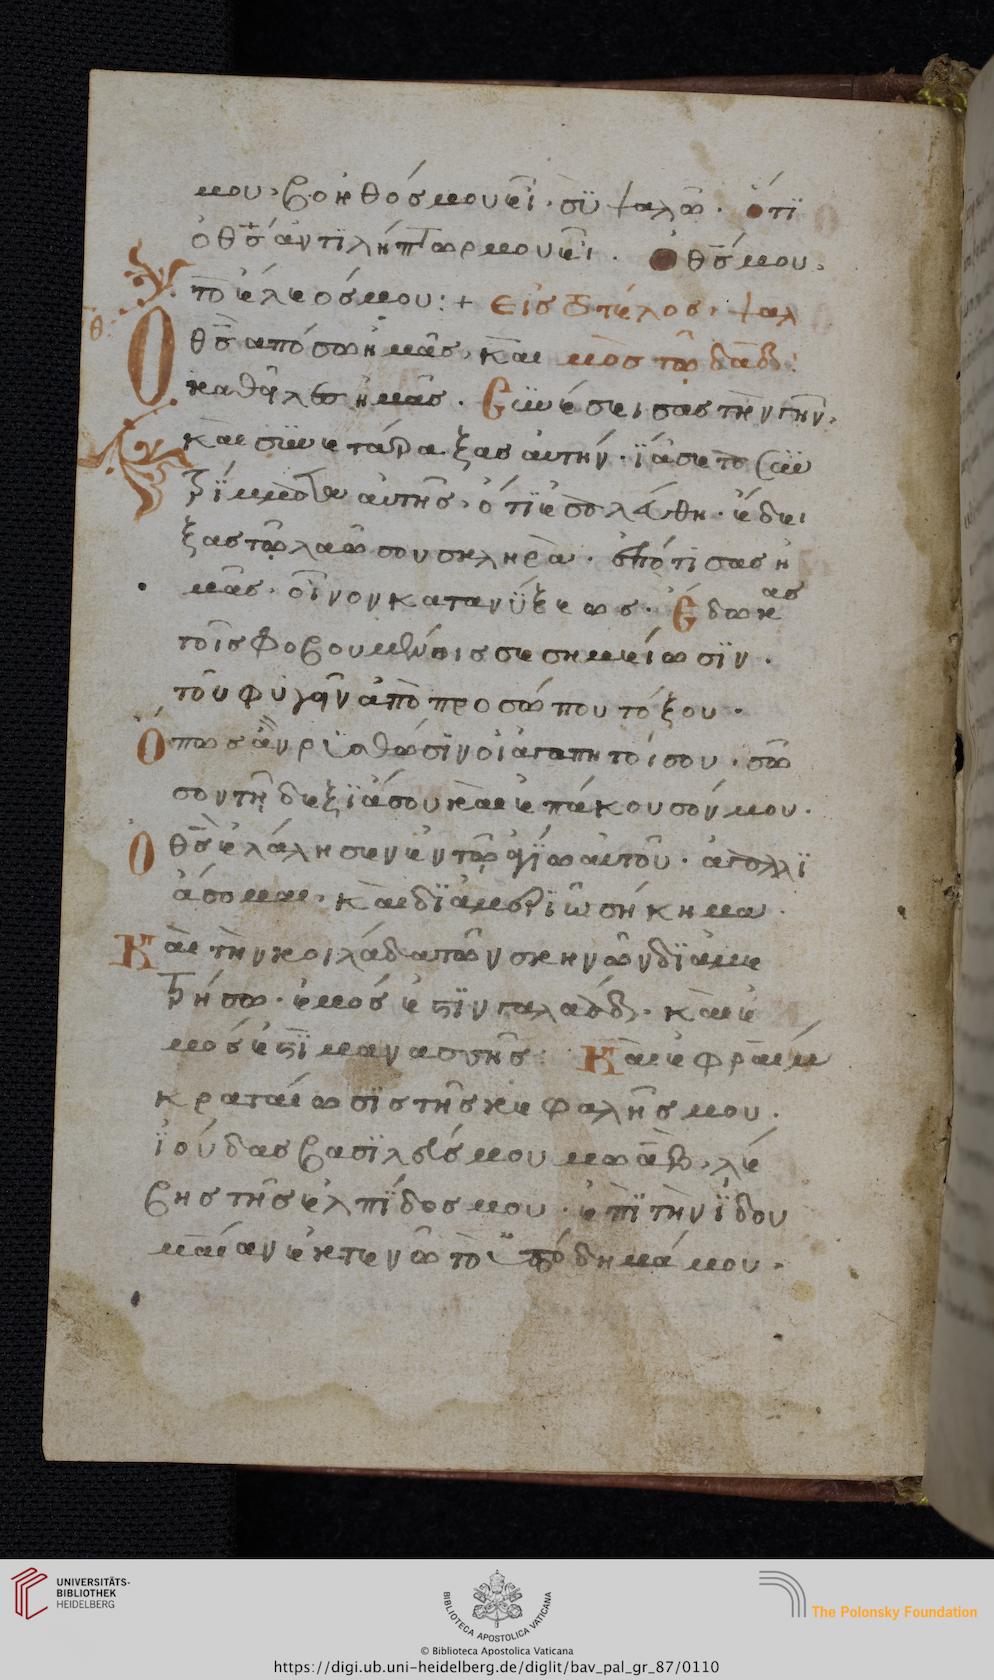 μου· βοηθός μου εἶ· σὺ ψαλῶ· ὅτϊ
ὁ θς ἀντϊλήπτωρ μου εἶ· Ὁ θς μου,
τὸ ἔλεός μου:+ εἰς τὸ τέλος, ψαλ
θ:
Ὁ θς ἀπόσω ἡμᾶς, καὶ μὸς τῷ δαδ:
καθῆλες ἡμᾶς. Cϋνέσεισας τὴν γῆν,
καὶ σϋνετάραξας αὐτήν· ἴασε τὸ σϋν
τρίμματα αὐτῆς, ὅτϊ ἐσαλεύθη· ἔδει
ξας τῷ λαῷ σου σκληρά· ἐπότισας ἡ
μᾶς· οἶνον κατανύξεως· Ἔδωκας
τοῖς φοβουμένοις σε σημείωσϊν.
τοῦ φυγῆν ἀπὸ προσώπου τόξου.
Ὅπως ἂν ρϋσθῶσϊν οἱ ἀγαπητοί σου, σῶ
σον τῇ δεξϊᾷ σου καὶ ἐπάκουσόν μου.
Ὁ θς ἐλάλησεν ἐν τῷ ἁγίω αὐτοῦ· ἀγαλλϊ
άσομαι, καὶ δϊαμεριῶ σήκημα.
Καὶ τὴν κοιλάδα τῶν σκηνῶν δϊαμε
τρήσω· ἐμός ἐστϊν γαλαάδ, καὶ ἐ
μός ἐστϊ μανασσῆς: Καὶ ἐφραὶμ
κραταίωσϊς τῆς κεφαλῆς μου.
ϊούδας βασϊλεύς μου μωὰβ, λέ
βης τῆς ἐλπϊδος μου· ἐπϊ τὴν ϊδου
μαίαν ἐκτενῶ τὸ ὑπόδημά μου.
UNIVERSITÄTS-
BIBLIOTHEK
HEIDELBERG
BIBLIOTECA APOSTOLICA VATICANA
The Polonsky Foundation
© Biblioteca Apostolica Vaticana
https://digi.ub.uni-heidelberg.de/diglit/bav_pal_gr_87/0110